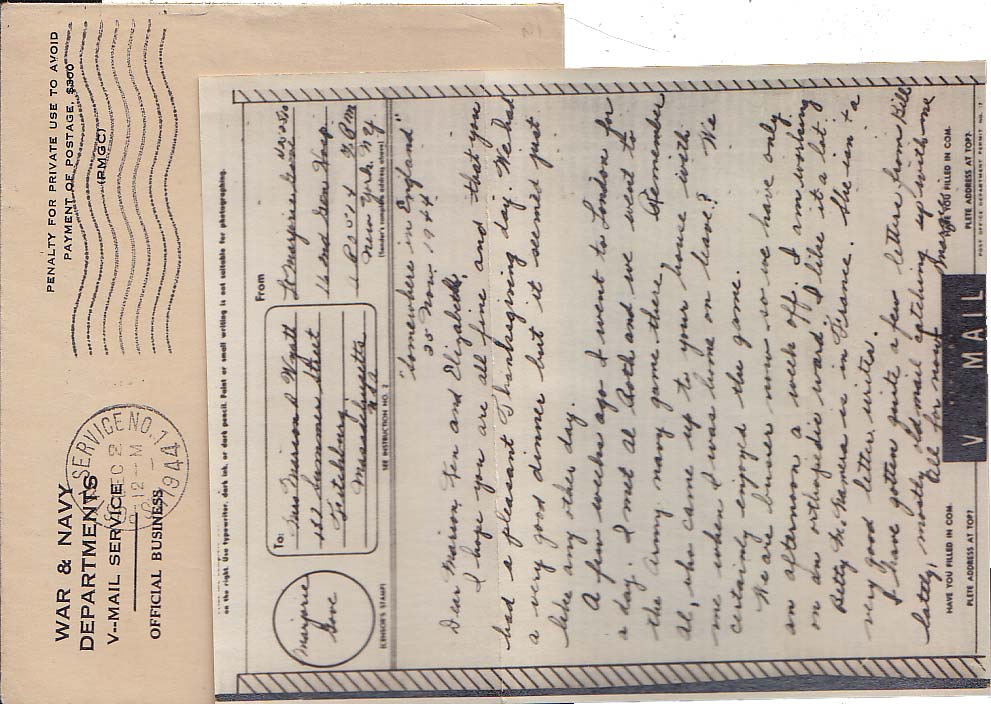 WAR & NAVY
DEPARTMENTS
V-MAIL SERVICE
OFFICIAL BUSINESS
PENALTY FOR PRIVATE USE TO AVOID
PAYMENT OF POSTAGE, $300
(PMGC)
SERVICE NO. 1
DEC 2
12-M
1944
on the right. Use typewriter, dark ink, or dark pencil. Faint or small writing is not suitable for photographing.
Marjorie
Gove
(CENSOR'S STAMP)
To:
Miss Marion D Wyatt
152 Summer Street
Fitchburg,
Massachusetts
USA
SEE INSTRUCTION NO. 2
From
Lt Marjorie Gove
16 Gen Hosp
New York, NY
(Sender's complete address above)
"Somewhere in England"
25 Nov. 1944
Dear Marion, Len and Elizabeth,
I hope you are all fine and that you
had a pleasant Thanksgiving day. We had
a very good dinner but it seemed just
like any other day.
A few weeks ago I went to London for
a day. I met Al Both and we went to
the army navy game there. Remember
Al, who came up to your house with
me when I was home on leave? We
certainly enjoyed the game.
We are busier now so we have only
an afternoon a week off. I am working
on an orthopedic ward. I like it a lot.
Betty is in France. She isn't a
very good letter writer.
I have gotten quite a few letters from Bill
lately, mostly old mail catching up with me
All for now, Margie
HAVE YOU FILLED IN COM-
PLETE ADDRESS AT TOP?
V · · · MAIL
HAVE YOU FILLED IN COM-
PLETE ADDRESS AT TOP?
POST OFFICE DEPT. PERMIT NO. 17